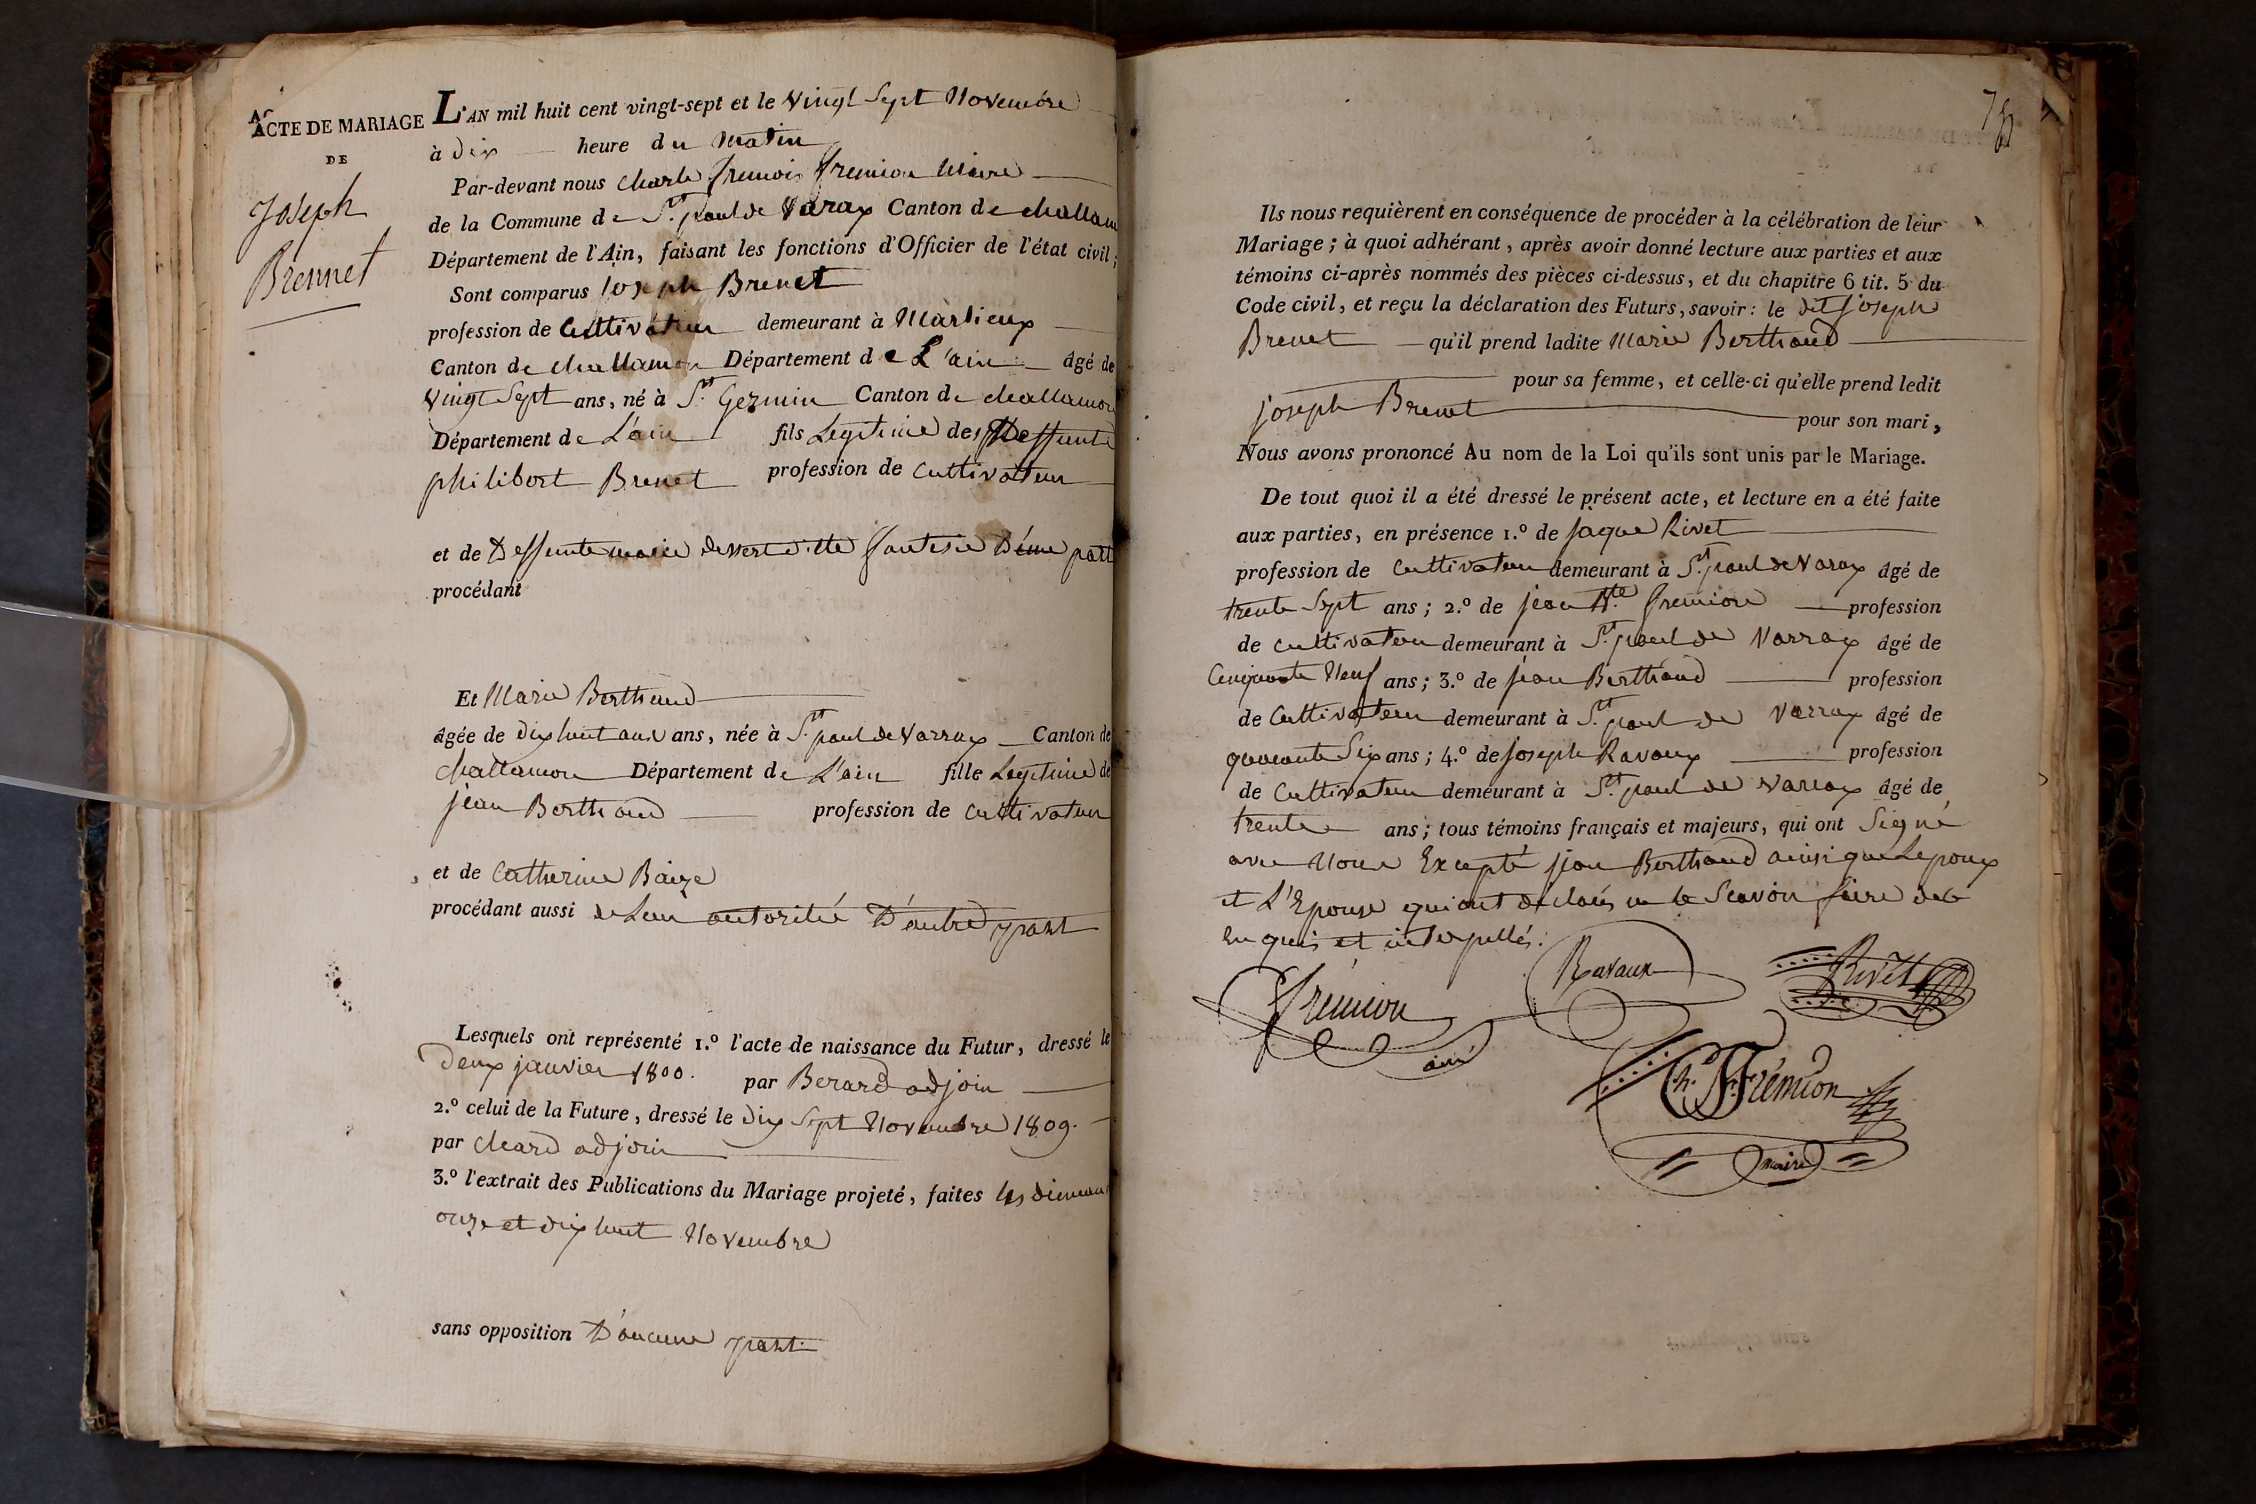 ACTE DE MARIAGE
DE
Joseph
Brennet
L'AN mil huit cent vingt-sept et le vingt Sept Novembre
à dix heure du matin
Par-devant nous Charle françois fremion Maire
de la Commune de St. paul de Varax Canton de challam
Département de l'Ain, faisant les fonctions d'Officier de l'état civil;
Sont comparus Joseph Brenet
profession de Cultivateur demeurant à Marlieux
Canton de challamon Département de L'ain âgé de
vingt Sept ans, né à St. Germin Canton de challamon
Département de L'ain fils Legitime des deffunts
philibert Brenet profession de cultivateur
et de Deffunte marie ditte D'une part
procédant
Et Marie Berthaud
âgée de dix huit ans ans, née à St. paul de Varrax Canton de
challamon Département de L'ain fille Legitime de
jean Berthaud profession de cultivateur
et de Catherine Baize
procédant aussi de Leur autorité D'autre part
Lesquels ont représenté 1.º l'acte de naissance du Futur, dressé le
Deux janvier 1800. par Berard adjoin
2.º celui de la Future, dressé le dix Sept Novembre 1809.
par chard adjoin
3.º l'extrait des Publications du Mariage projeté, faites les dimanc
onze et dix huit Novembre
sans opposition D'aucune part.
Ils nous requièrent en conséquence de procéder à la célébration de leur
Mariage; à quoi adhérant, après avoir donné lecture aux parties et aux
témoins ci-après nommés des pièces ci-dessus, et du chapitre 6 tit. 5 du
Code civil, et reçu la déclaration des Futurs, savoir: le dit joseph
Brenet qu'il prend ladite Marie Berthaud
pour sa femme, et celle-ci qu'elle prend ledit
joseph Brenet pour son mari,
Nous avons prononcé Au nom de la Loi qu'ils sont unis par le Mariage.
De tout quoi il a été dressé le présent acte, et lecture en a été faite
aux parties, en présence 1.º de jaque Rivet
profession de cultivateur demeurant à St. paul de Varax âgé de
trente Sept ans; 2.º de jean Bte fremion profession
de cultivateur demeurant à St. paul de Varrax âgé de
Cinquante Neuf ans; 3.º de jean Berthaud profession
de Cultivateur demeurant à St. paul de Varrax âgé de
quarante Six ans; 4.º de joseph Ravaux profession
de Cultivateur demeurant à St. paul de Varrax âgé de
trente ans; tous témoins français et majeurs, qui ont Signé
avec Nous Excepté jean Berthaud ainsi que Lepoux
et L'Epouse qui ont déclarés ne le Scavoir faire de ce
Enquis et interpellés.
Ravaux
Rivet
frémion
ainé
Ch. F. Frémion
maire